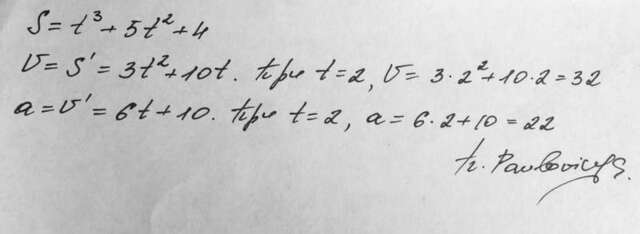 S = t³ + 5t² + 4
V = S' = 3t² + 10t. при t = 2, V = 3 · 2² + 10 · 2 = 32
a = V' = 6t + 10. при t = 2, a = 6 · 2 + 10 = 22